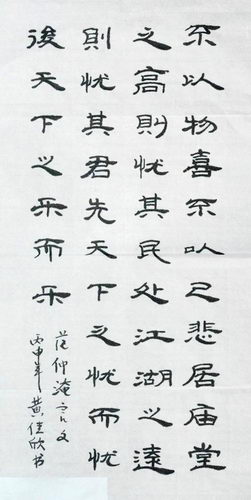 不以物喜不以己悲居庙堂
之高則忧其民处江湖之遠
則忧其君先天下之忧而忧
後天下之乐而乐
范仲淹文
丙申年黄佳欣书